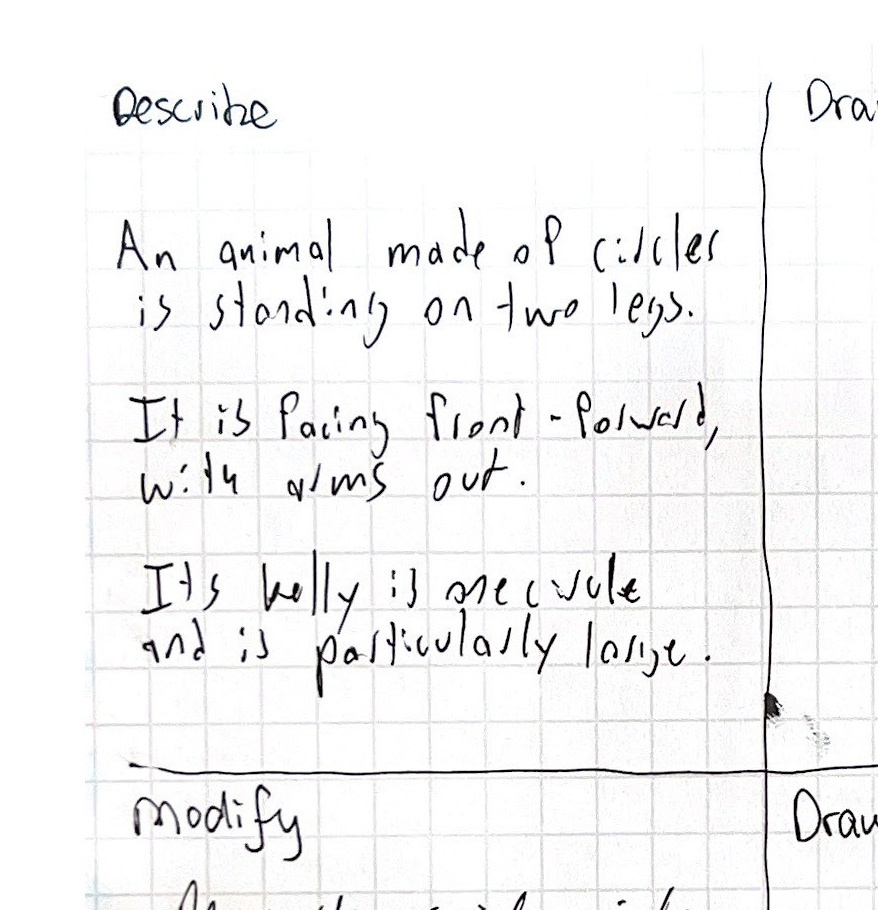 Describe
Dra
An animal made of circles
is standing on two legs.
It is facing front-forward,
with arms out.
Its belly is one circle
and is particularly large.
Modify
Draw